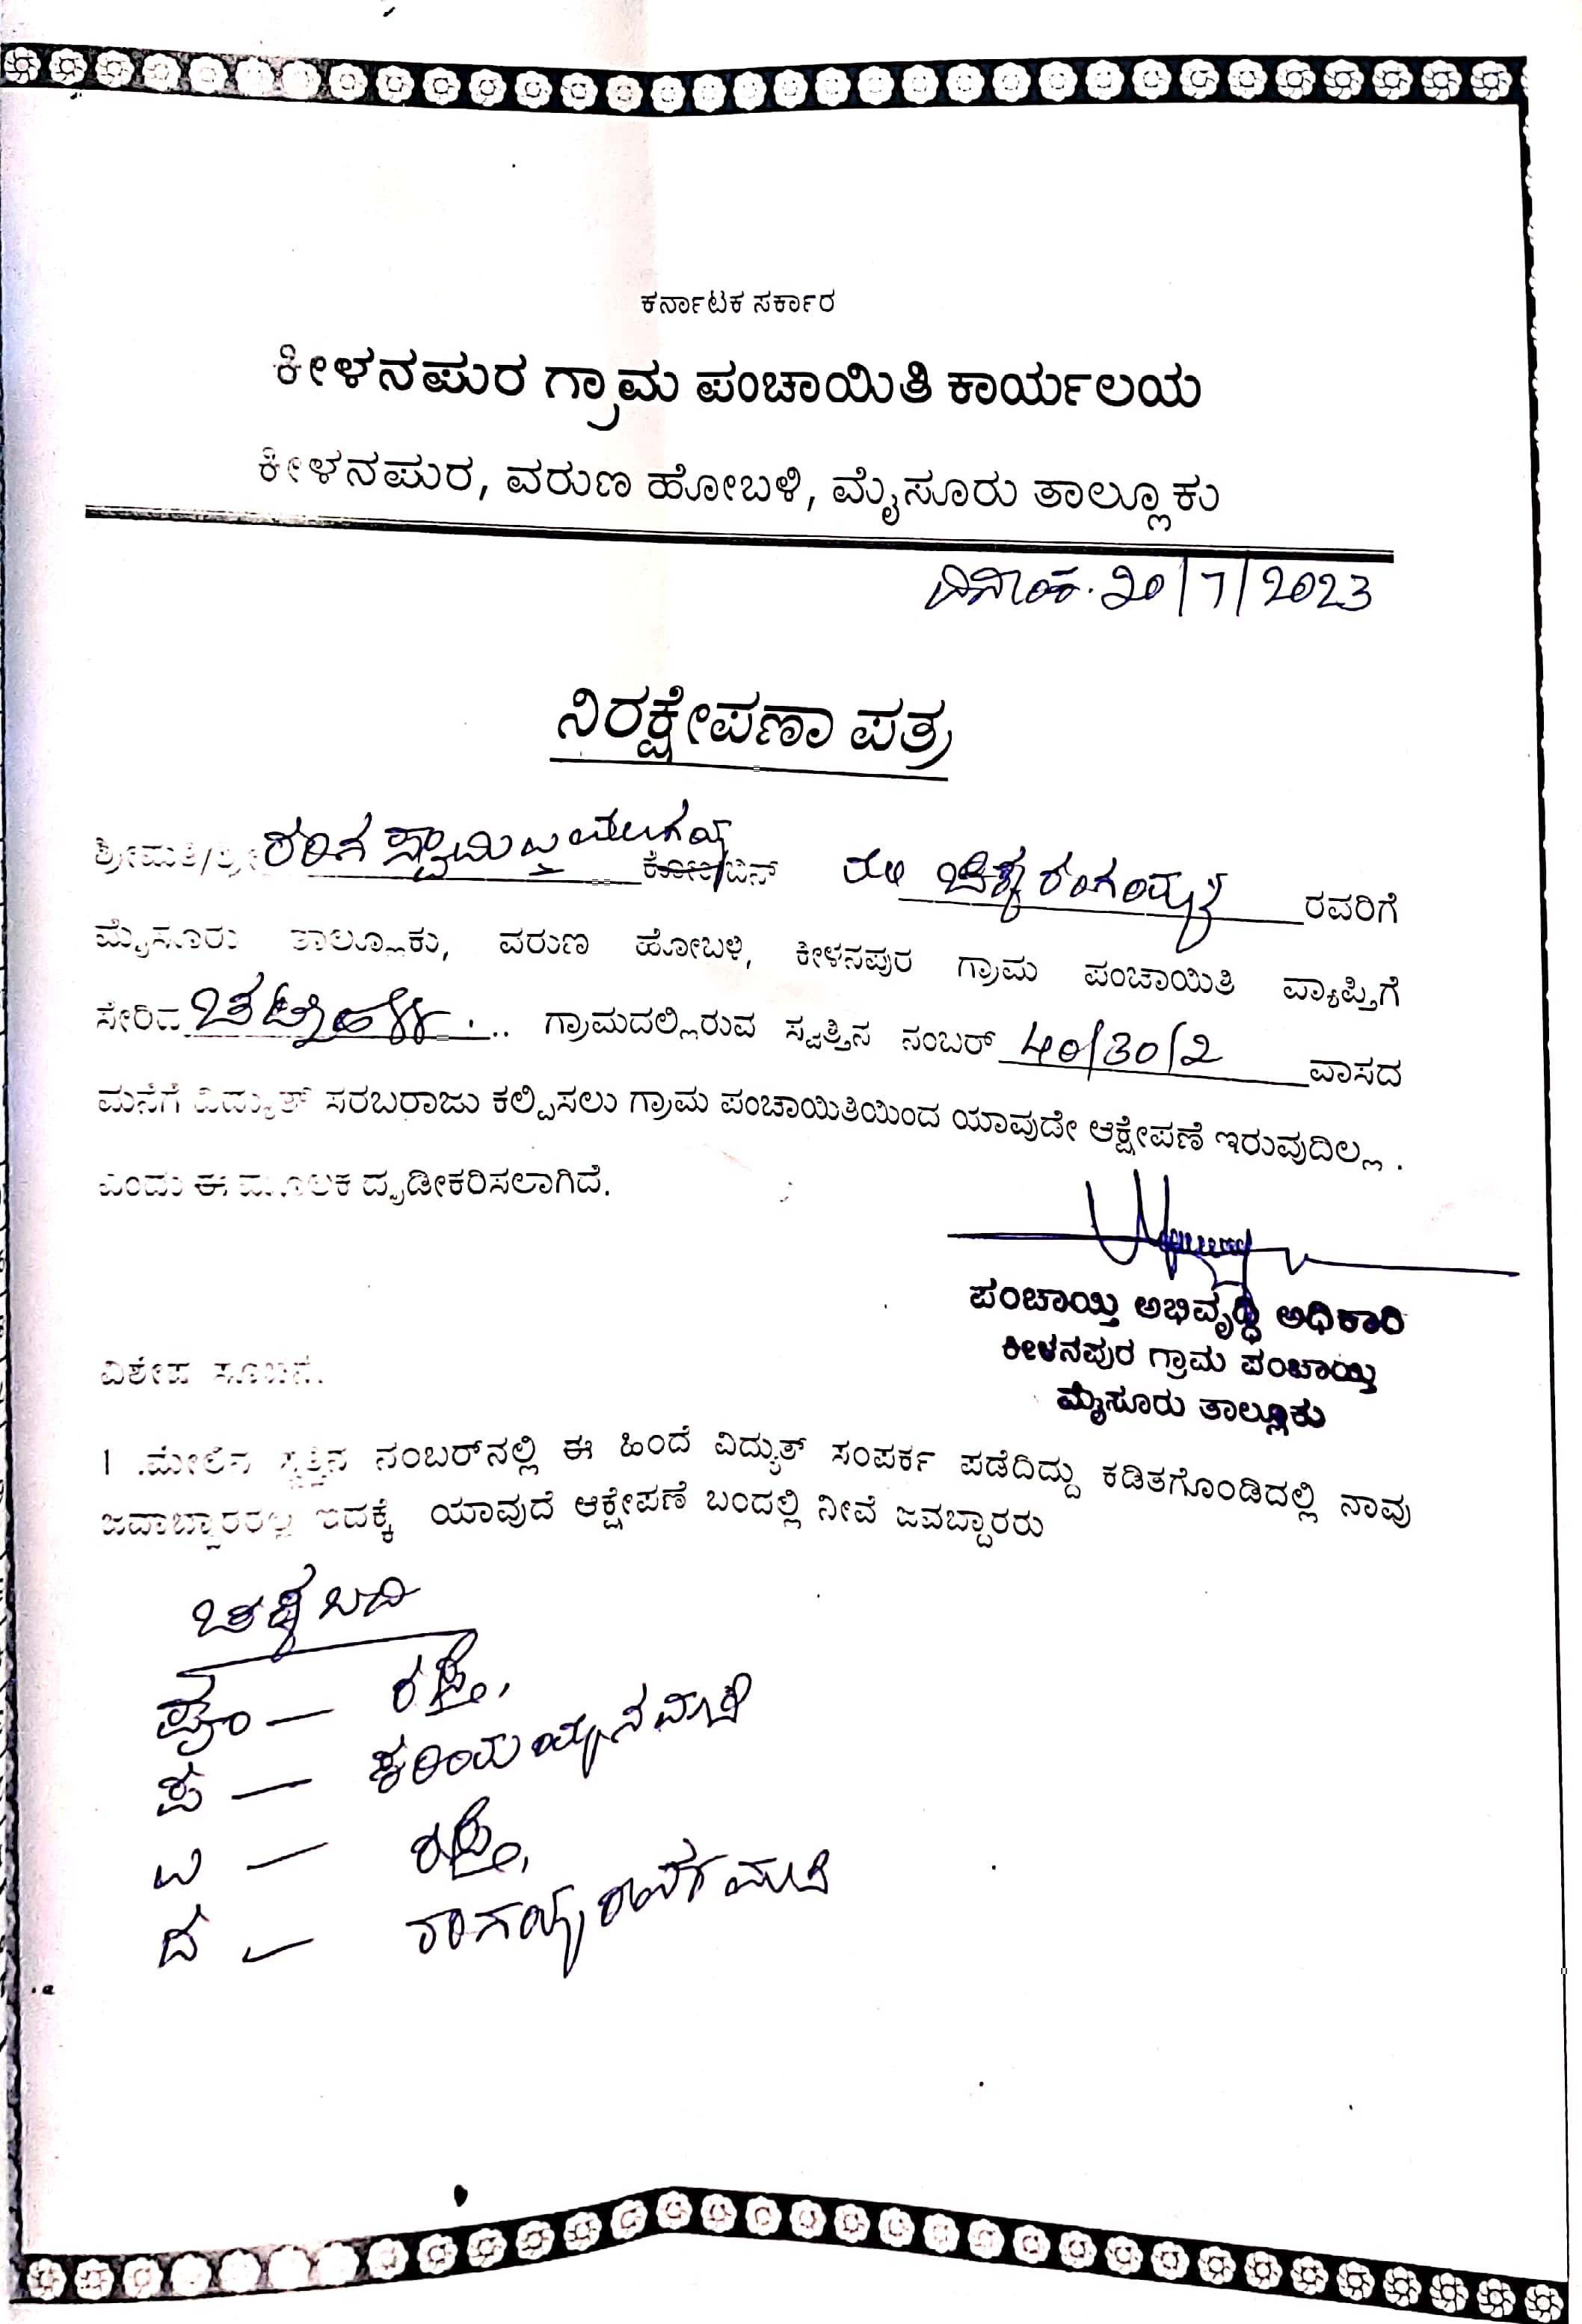 ಕರ್ನಾಟಕ ಸರ್ಕಾರ
ಕೀಳನಪುರ ಗ್ರಾಮ ಪಂಚಾಯಿತಿ ಕಾರ್ಯಲಯ
ಕೀಳನಪುರ, ವರುಣ ಹೋಬಳಿ, ಮೈಸೂರು ತಾಲ್ಲೂಕು
ದಿನಾಂಕ. 20/7/2023
ನಿರಕ್ಷೇಪಣಾ ಪತ್ರ
ಶ್ರೀಮತಿ/ಶ್ರೀ ರಂಗಸ್ವಾಮಿ ರವರಿಗೆ
ಮೈಸೂರು ತಾಲ್ಲೂಕು, ವರುಣ ಹೋಬಳಿ, ಕೀಳನಪುರ ಗ್ರಾಮ ಪಂಚಾಯಿತಿ ವ್ಯಾಪ್ತಿಗೆ
ಸೇರಿದ ಗ್ರಾಮದಲ್ಲಿರುವ ಸ್ವತ್ತಿನ ನಂಬರ್ 40/30/2 ವಾಸದ
ಮನೆಗೆ ವಿದ್ಯುತ್ ಸರಬರಾಜು ಕಲ್ಪಿಸಲು ಗ್ರಾಮ ಪಂಚಾಯಿತಿಯಿಂದ ಯಾವುದೇ ಆಕ್ಷೇಪಣೆ ಇರುವುದಿಲ್ಲ .
ಎಂದು ಈ ಮೂಲಕ ದೃಡೀಕರಿಸಲಾಗಿದೆ.
ಪಂಚಾಯ್ತಿ ಅಭಿವೃದ್ಧಿ ಅಧಿಕಾರಿ
ಕೀಳನಪುರ ಗ್ರಾಮ ಪಂಚಾಯ್ತಿ
ಮೈಸೂರು ತಾಲ್ಲೂಕು
ವಿಶೇಷ ಸೂಚನೆ.
1 .ಮೇಲಿನ ಸ್ವತ್ತಿನ ನಂಬರ್‌ನಲ್ಲಿ ಈ ಹಿಂದೆ ವಿದ್ಯುತ್ ಸಂಪರ್ಕ ಪಡೆದಿದ್ದು ಕಡಿತಗೊಂಡಿದಲ್ಲಿ ನಾವು
ಜವಾಬ್ದಾರರಲ್ಲ ಇದಕ್ಕೆ ಯಾವುದೆ ಆಕ್ಷೇಪಣೆ ಬಂದಲ್ಲಿ ನೀವೆ ಜವಬ್ದಾರರು
ಚಕ್ಕಬಂದಿ
ಪೂ — ರಸ್ತೆ,
ಪ — ಕರಿಯಯ್ಯನ ಮನೆ
ಉ — ರಸ್ತೆ,
ದ —